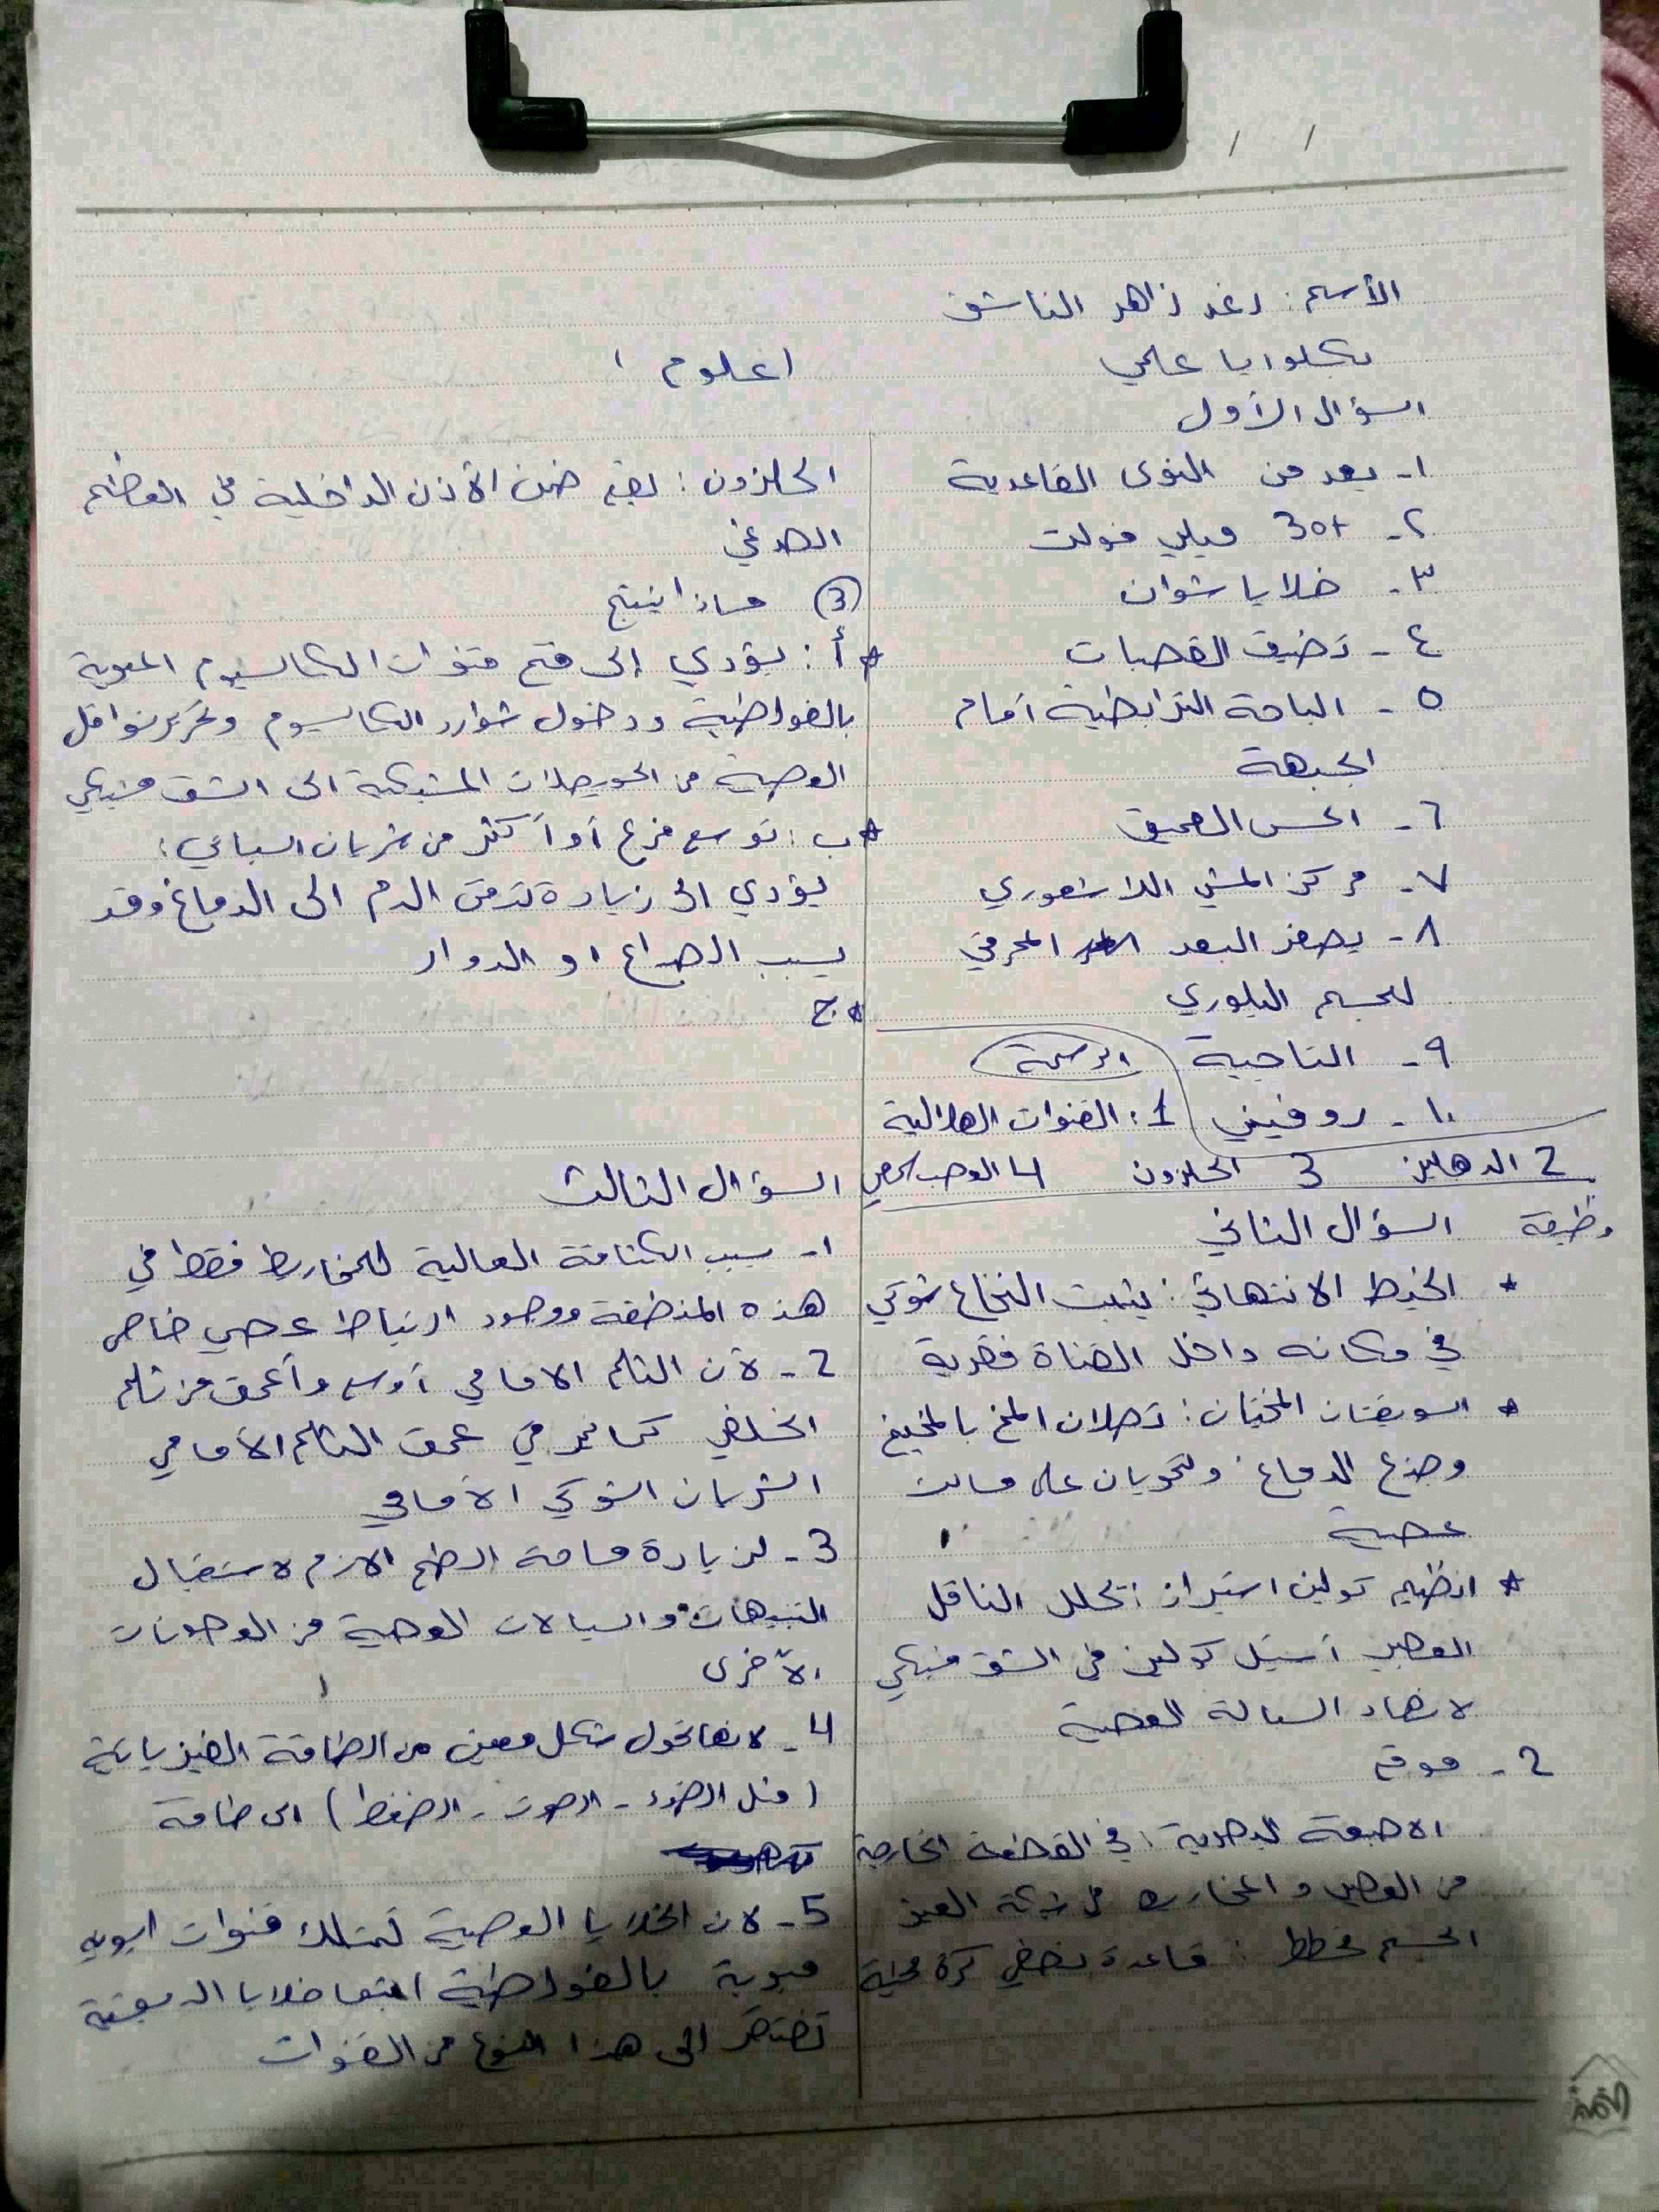 الأسم: رغد زاهر الناشف
بكلوريا علمي
اعلوم
السؤال الأول
١- يعد من النوى القاعدية
٢- +30 ميلي فولت
٣- خلايا شوان
٤- تضيق القصبات
٥- الباحة الترابطية أمام
الجبهة
٦- الحس العميق
٧- مركز المشي اللاشعوري
٨- يصغر البعد المحرقي
للجسم البلوري
٩- التاجية
١٠- روفيني
الرسمة
1: القنوات الهلالية
2 الدهليز 3 الحلزون 4 العصب
السؤال الثاني
وظيفة
* الخيط الانتهائي: يثبت النخاع شوكي
في مكانه داخل القناة فقرية
* السويقتان المخيتان: تصلان المخ بالمخيخ
وجذع الدماغ وتحويان على مسالك
عصبية
* انظيم كولين استيراز: تحلل الناقل
العصبي أستيل كولين في الشق مشبكي
لانهاء السيالة العصبية
2- موقع
الاصبغة البصرية: في القطعة الخارجية
من العصي و المخاريط في شبكة العين
الجسم مخطط: قاعدة نصفي كرة مخية
الحلزون: يقع ضمن الأذن الداخلية في العظم
الصدغي
③ ماذا ينتج
* أ: يؤدي إلى فتح قنوات الكالسيوم المبوبة
بالفولطية ودخول شوارد الكالسيوم وتحرير نواقل
العصبية من الحويصلات المشبكية الى الشق مشبكي
* ب: توسع فرع أو أكثر من شريان السباتي:
يؤدي الى زيادة تدفق الدم الى الدماغ وقد
يسبب الصداع او الدوار
* ج
السؤال الثالث
١- بسبب الكثافة العالية للمخاريط فقط في
هذه المنطقة ووجود ارتباط عصبي خاص
2- لأن الثلم الامامي أوسع وأعمق من ثلم
الخلفي كما نمر في عمق الثلم الأمامي
الشريان الشوكي الأمامي
3- لزيادة مساحة السطح الازم لاستقبال
التنبيهات والسيالات العصبية من العصبونات
الأخرى
4- لانها تحول شكل معين من الطاقة الفيزيائية
(مثل الضوء - الصوت - الضغط) الى طاقة
5- لان الخلايا العصبية تمتلك قنوات ايونية
مبوبة بالفولطية اينما خلايا الدبقية
تفتقر الى هذا النوع من القنوات